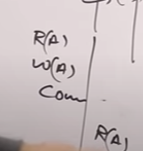 R(A)
W(A)
Com
R(A)